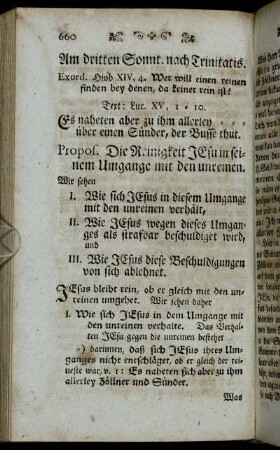 660
Am dritten Sonnt. nach Trinitatis.
Exord. Hiob XIV, 4. Wer will einen reinen
finden bey denen, da keiner rein ist?
Text: Luc. XV, 1 - 10.
Es naheten aber zu ihm allerley - - -
über einen Sünder, der Busse thut.
Propos. Die Reinigkeit JEsu in sei-
nem Umgange mit den unreinen.
Wir sehen
I. Wie sich JEsus in diesem Umgange
mit den unreinen verhält,
II. Wie JEsus wegen dieses Umgan-
ges als strafbar beschuldiget wird,
und
III. Wie JEsus diese Beschuldigungen
von sich ablehnet.
JEsus bleibt rein, ob er gleich mit den un-
reinen umgehet. Wir sehen daher
I. Wie sich JEsus in dem Umgange mit
den unreinen verhalte. Das Verhal-
ten JEsu gegen die unreinen bestehet
darinnen, daß sich JEsus ihres Um-
ganges nicht entschläget, ob er gleich der rei-
neste war, v. 1: Es naheten sich aber zu ihm
allerley Zöllner und Sünder.
Was